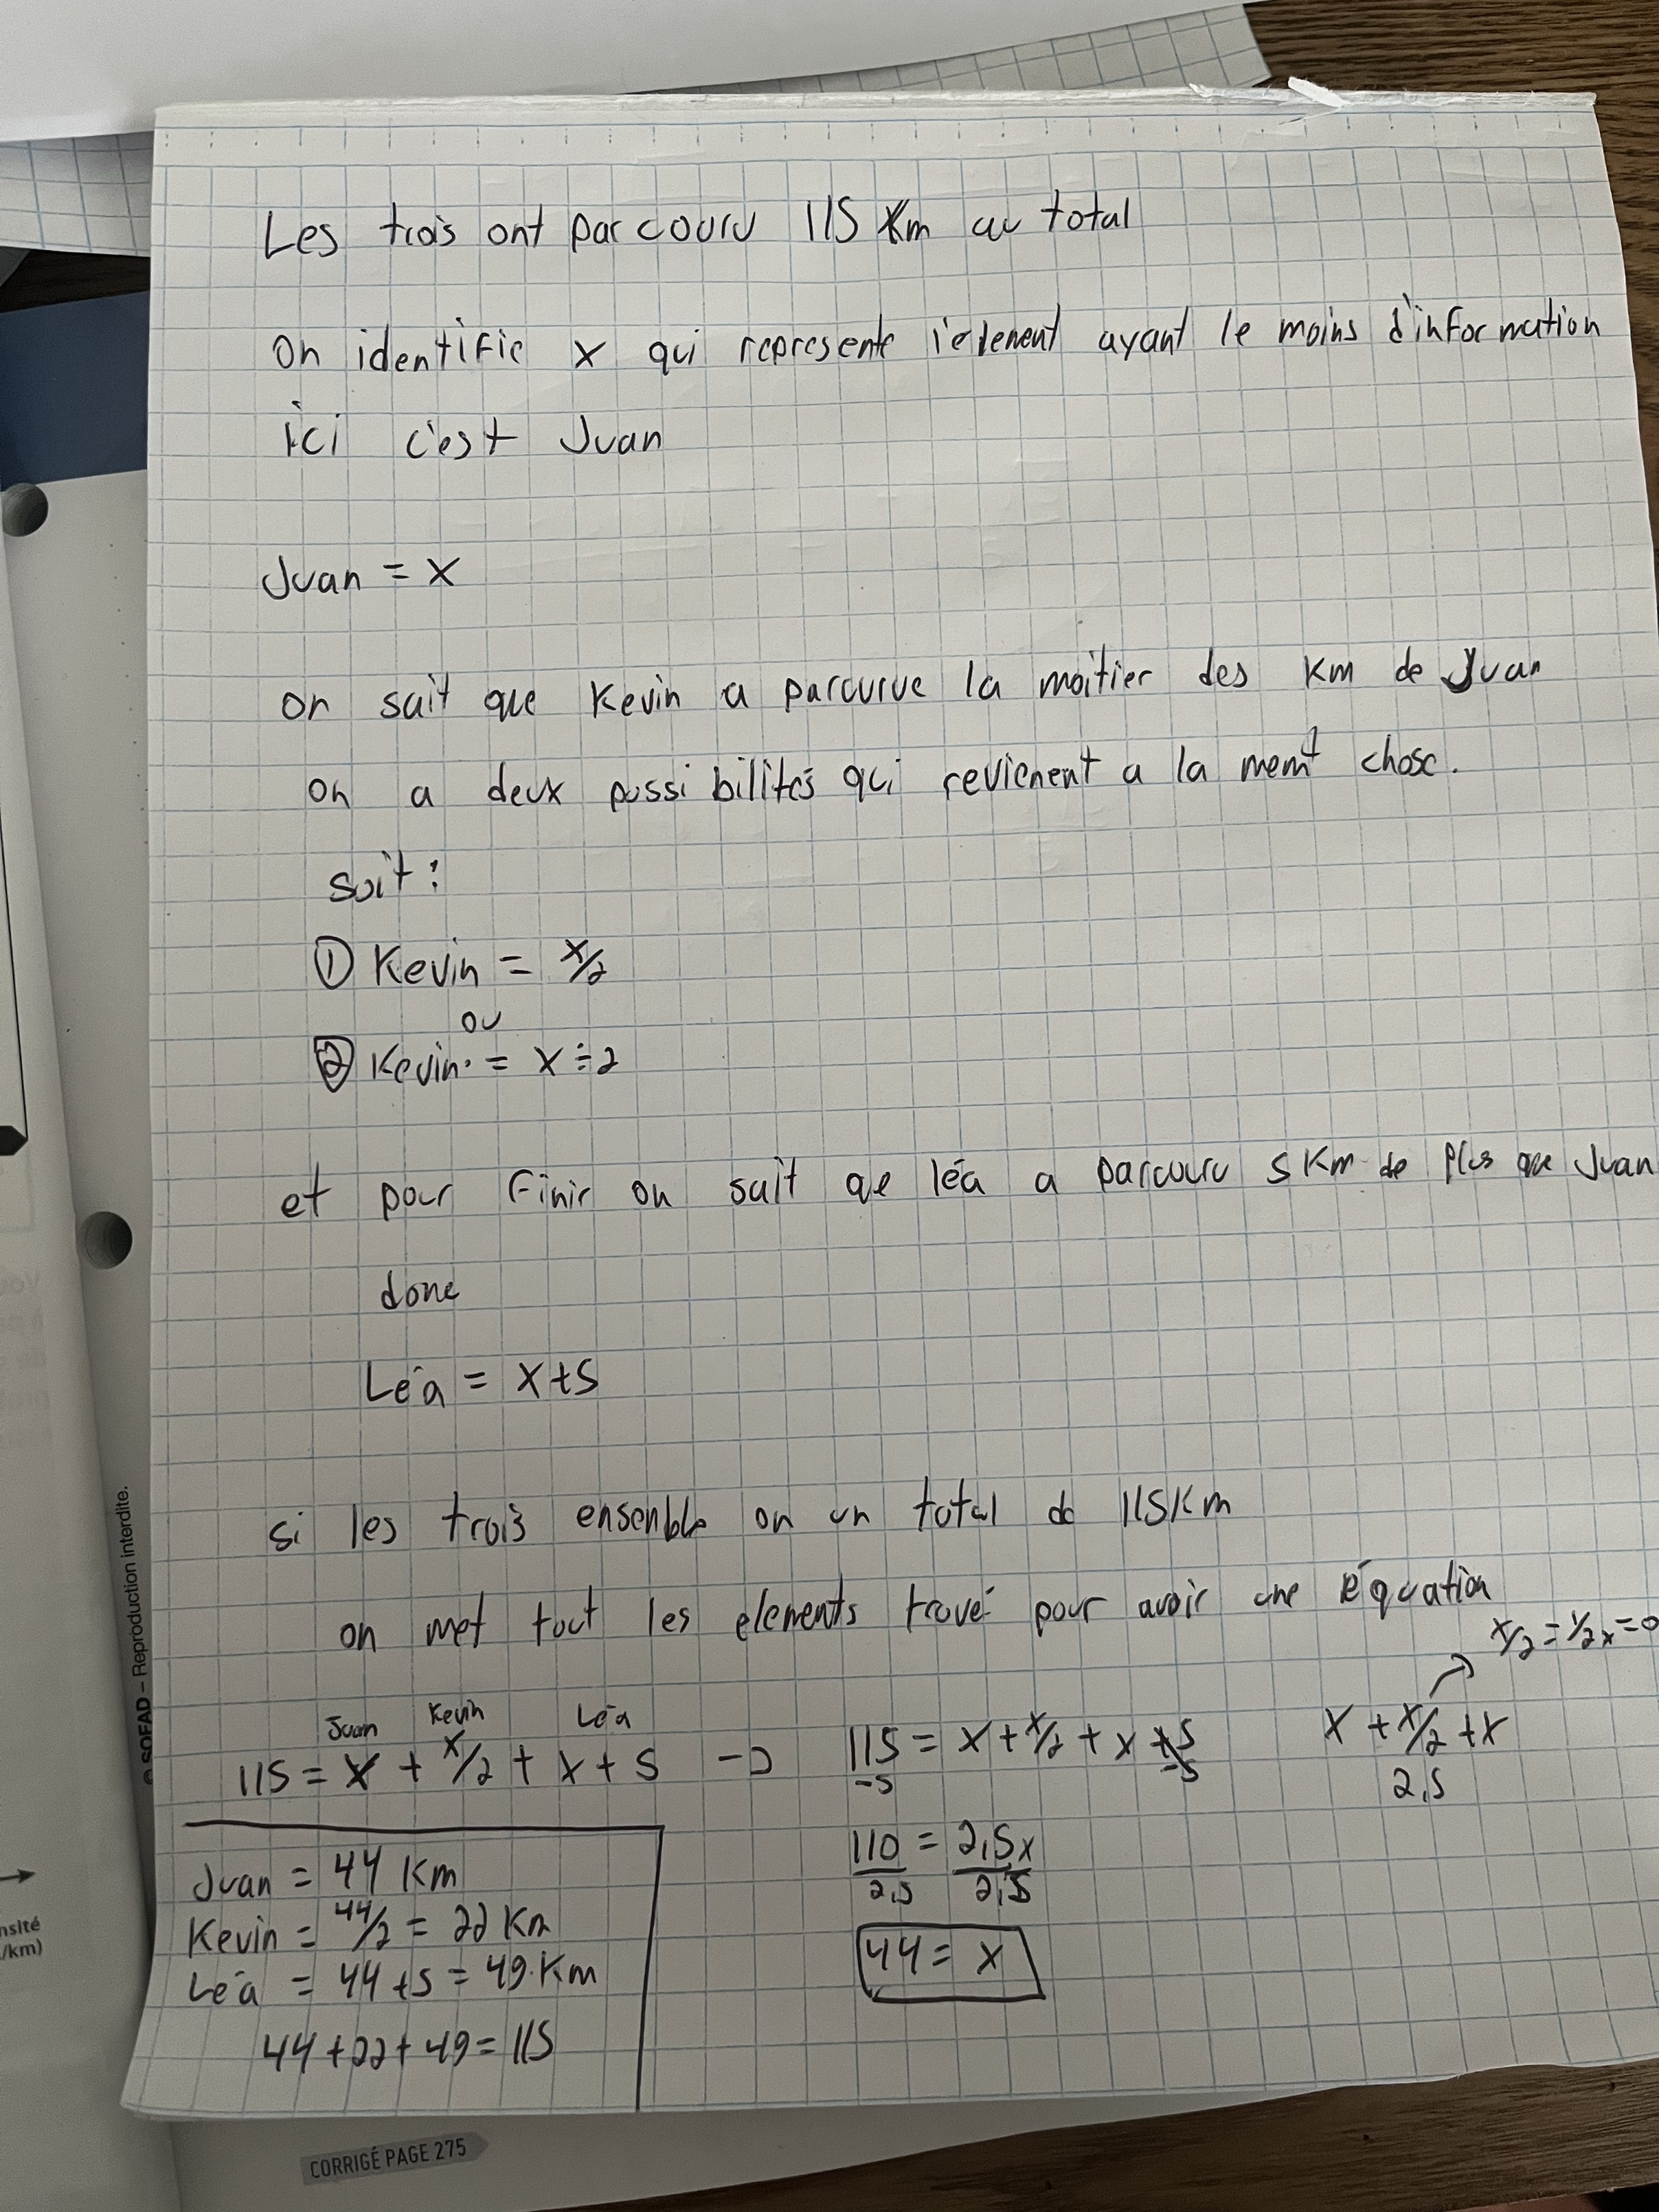 Les trois ont parcouru 115 Km au total
On identifie x qui represente l'element ayant le moins d'information
ici c'est Juan
Juan = x
on sait que Kevin a parcurue la moitier des Km de Juan
on a deux possibilités qui revienent a la meme chose.
soit :
① Kevin = x/2
ou
② Kevin = x ÷ 2
et pour finir on sait que léa a parcouru 5 Km de plus que Juan
donc
Léa = x+5
si les trois ensemble on un total de 115 Km
on met tout les elements trouvé pour avoir une équation
x/2 = 1/2x = 0
Juan Kevin Léa
115 = x + x/2 + x + 5 → 115 = x + x/2 + x + 5 x + x/2 + x
-5 -5 2,5
110 = 2,5x
2,5 2,5
44 = x
Juan = 44 Km
Kevin = 44/2 = 22 Km
Léa = 44 + 5 = 49 Km
44 + 22 + 49 = 115
SOFAD – Reproduction interdite.
nsité
/km)
CORRIGÉ PAGE 275